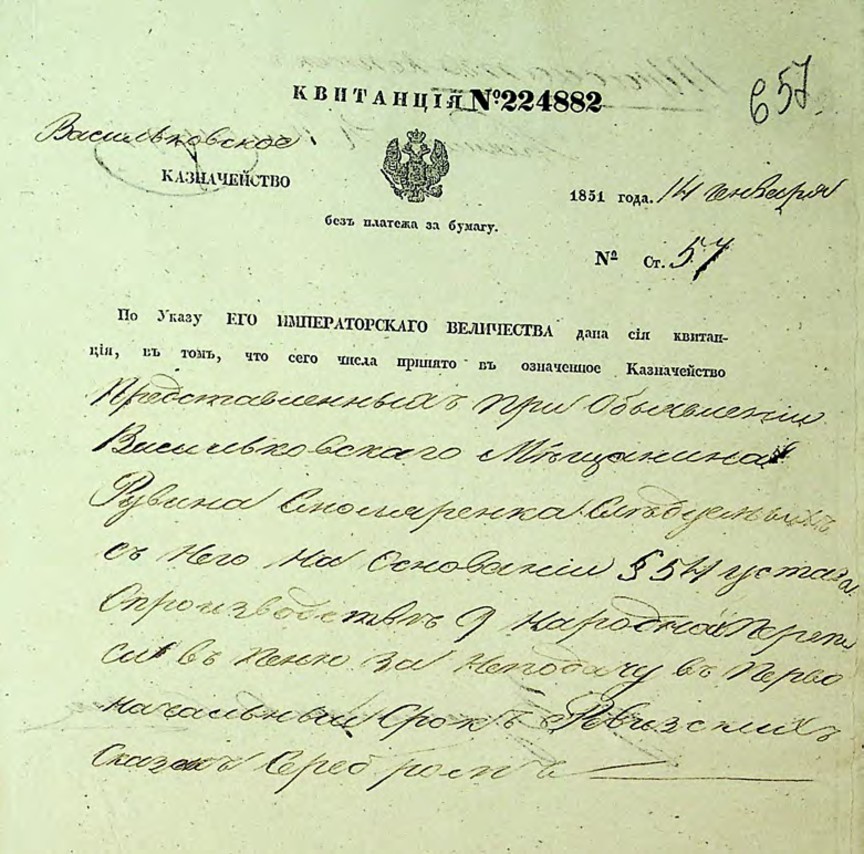 КВИТАНЦІЯ №224882
657.
Васильковское
КАЗНАЧЕЙСТВО
1851 года. 14 генваря
безъ платежа за бумагу.
№ Ст. 57
По Указу ЕГО ИМПЕРАТОРСКАГО ВЕЛИЧЕСТВА дана сія квитан-
ція, въ томъ, что сего числа принято въ означенное Казначейство
Представленныхъ при Объявленіи
Васильковского Мѣщанина
Рувина Столяренка Слѣдуемыхъ
съ него на основаніи § 54 устава
О производствѣ 9 народной Перепи
си въ пеню за неподачу въ перво
начальный Срокъ Ревизскихъ
Сказокъ Серебромъ